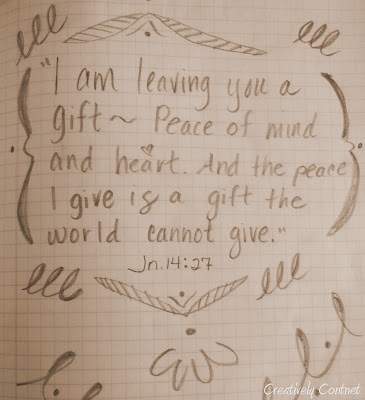 "I am leaving you a
gift~ Peace of mind
and heart. And the peace
I give is a gift the
world cannot give."
Jn. 14:27
Creatively Contnet